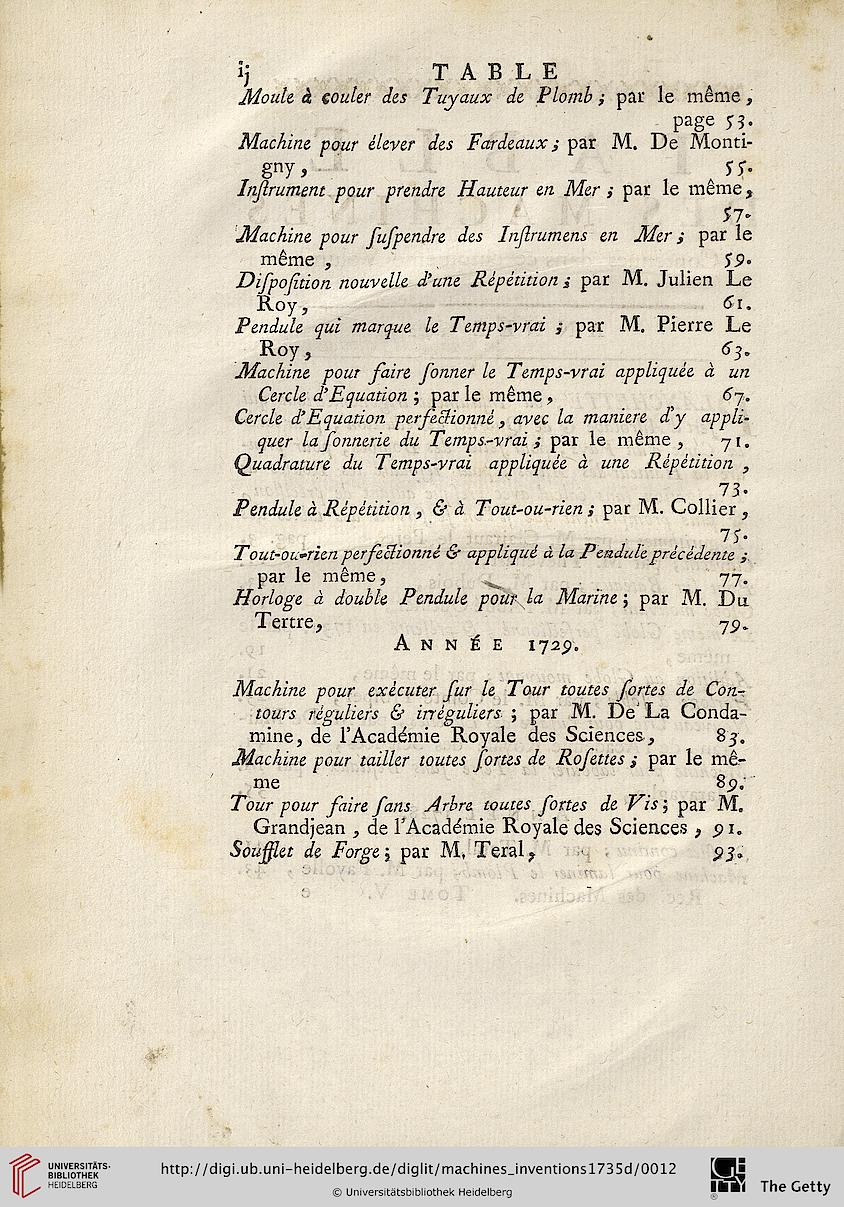 ij TABLE
Moule à couler des Tuyaux de Plomb ; par le même,
page 53.
Machine pour élever des Fardeaux ; par M. De Monti-
gny, 55.
Inſtrument pour prendre Hauteur en Mer ; par le même,
57.
Machine pour ſuſpendre des Inſtrumens en Mer ; par le
même , 59.
Diſpoſition nouvelle d'une Répétition ; par M. Julien Le
Roy, 61.
Pendule qui marque le Temps-vrai ; par M. Pierre Le
Roy, 63.
Machine pour faire ſonner le Temps-vrai appliquée à un
Cercle d'Equation ; par le même, 67.
Cercle d'Equation perfectionné, avec la maniere d'y appli-
quer la ſonnerie du Temps-vrai ; par le même , 71.
Quadrature du Temps-vrai appliquée à une Répétition ,
73.
Pendule à Répétition , & à Tout-ou-rien ; par M. Collier,
75.
Tout-ou-rien perfectionné & appliqué à la Pendule précédente ;
par le même, 77.
Horloge à double Pendule pour la Marine ; par M. Du
Tertre, 79.
ANNÉE 1729.
Machine pour exécuter ſur le Tour toutes ſortes de Con-
tours réguliers & irréguliers ; par M. De La Conda-
mine, de l'Académie Royale des Sciences, 83.
Machine pour tailler toutes ſortes de Roſettes ; par le mê-
me 89.
Tour pour faire ſans Arbre toutes ſortes de Vis ; par M.
Grandjean , de l'Académie Royale des Sciences , 91.
Soufflet de Forge ; par M. Teral, 93.
UNIVERSITÄTS-
BIBLIOTHEK
HEIDELBERG
http://digi.ub.uni-heidelberg.de/diglit/machines_inventions1735d/0012
© Universitätsbibliothek Heidelberg
GETTY
The Getty